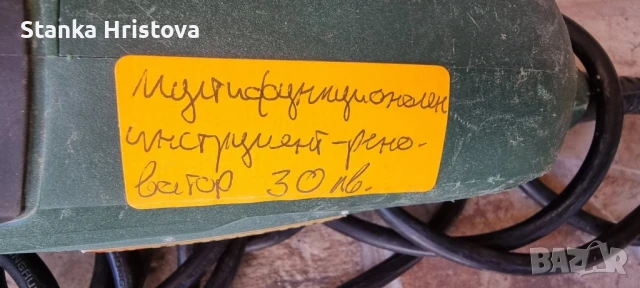 Stanka Hristova
Мултифункционален
инструмент-рено-
ватор 30 лв.
BAZAR